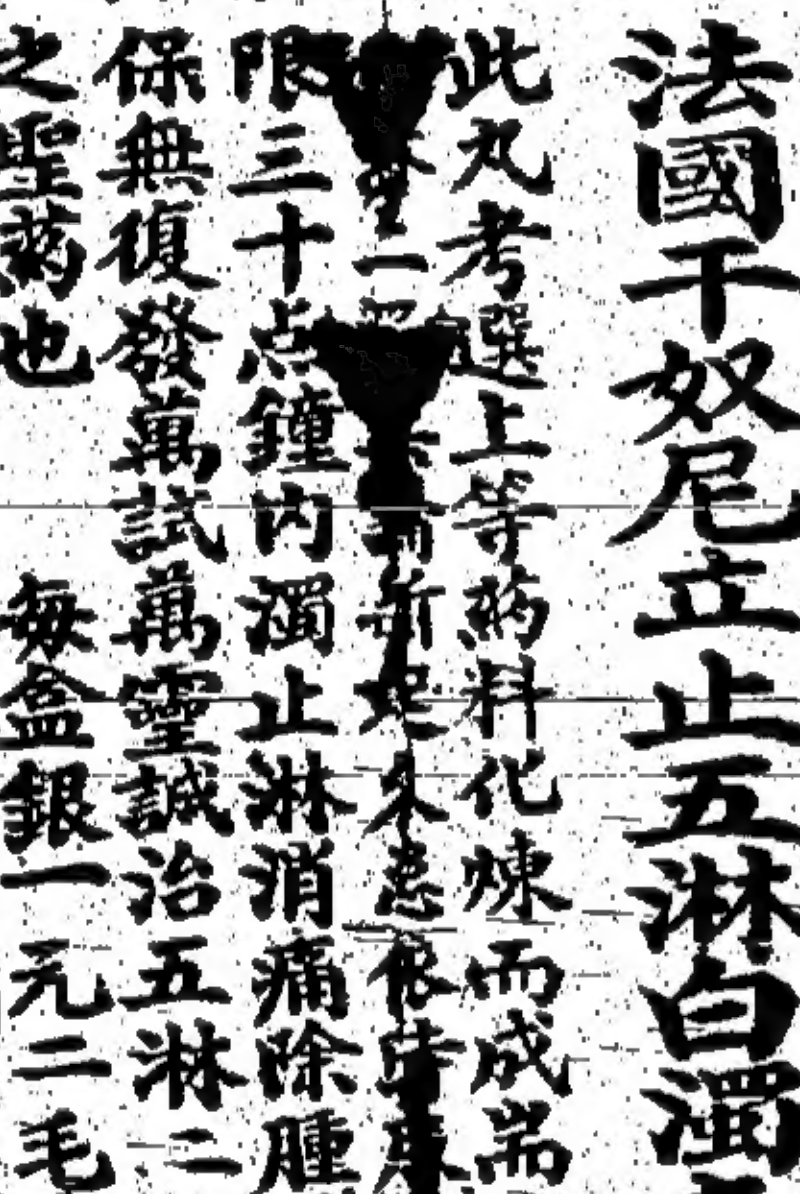 法國干奴尼立止五淋白濁
此丸考選上等葯料化煉而成耑
一新起久患
限三十点鐘內濁止淋消痛除腫
保無復發萬試萬靈誠治五淋二
之聖葯也 每盒銀一元二毛